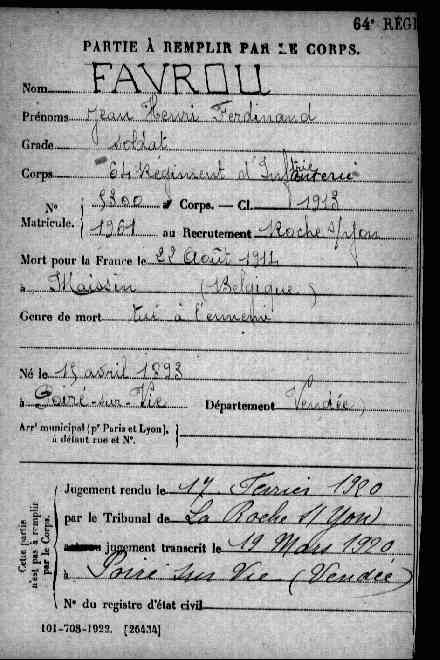 64e RÉGI
PARTIE À REMPLIR PAR LE CORPS.
Nom FAVROU
Prénoms Jean Henri Ferdinand
Grade soldat
Corps 64 Régiment d'Infanterie
N° 5300 Corps. — Cl. 1913
Matricule. 1961 au Recrutement Roche s/yon
Mort pour la France le 22 Août 1914
à Maissin (Belgique)
Genre de mort tué à l'ennemi
Né le 15 avril 1893
à Poiré-sur-Vie Département Vendée
Arrt municipal (pr Paris et Lyon),
à défaut rue et N°.
Cette partie
n'est pas à remplir
par le Corps.
Jugement rendu le 17 Février 1920
par le Tribunal de La Roche s/Yon
jugement transcrit le 19 Mars 1920
à Poiré sur Vie (Vendée)
N° du registre d'état civil
101-708-1922. [26434]